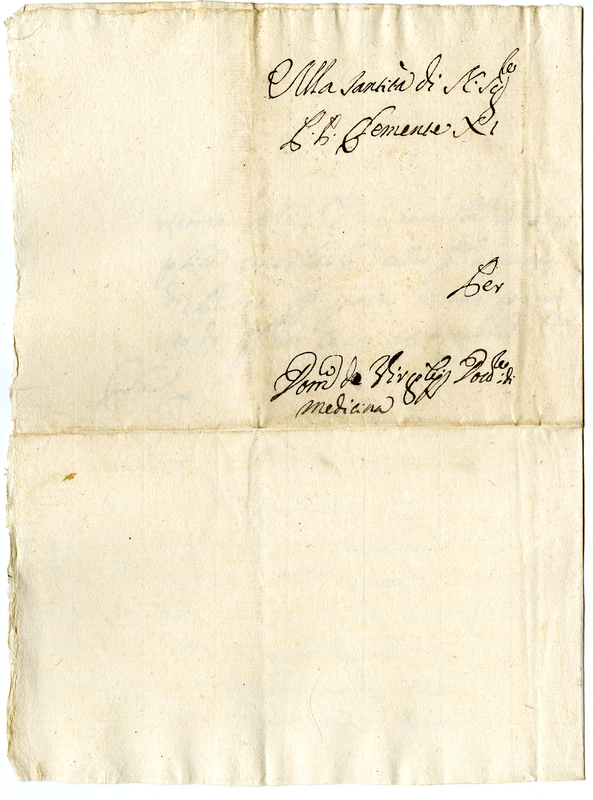 Alla Santità di N. Sig.re
P. P. Clemente XI
Per
Dom.co de Virgilijs Dott.re di
medicina